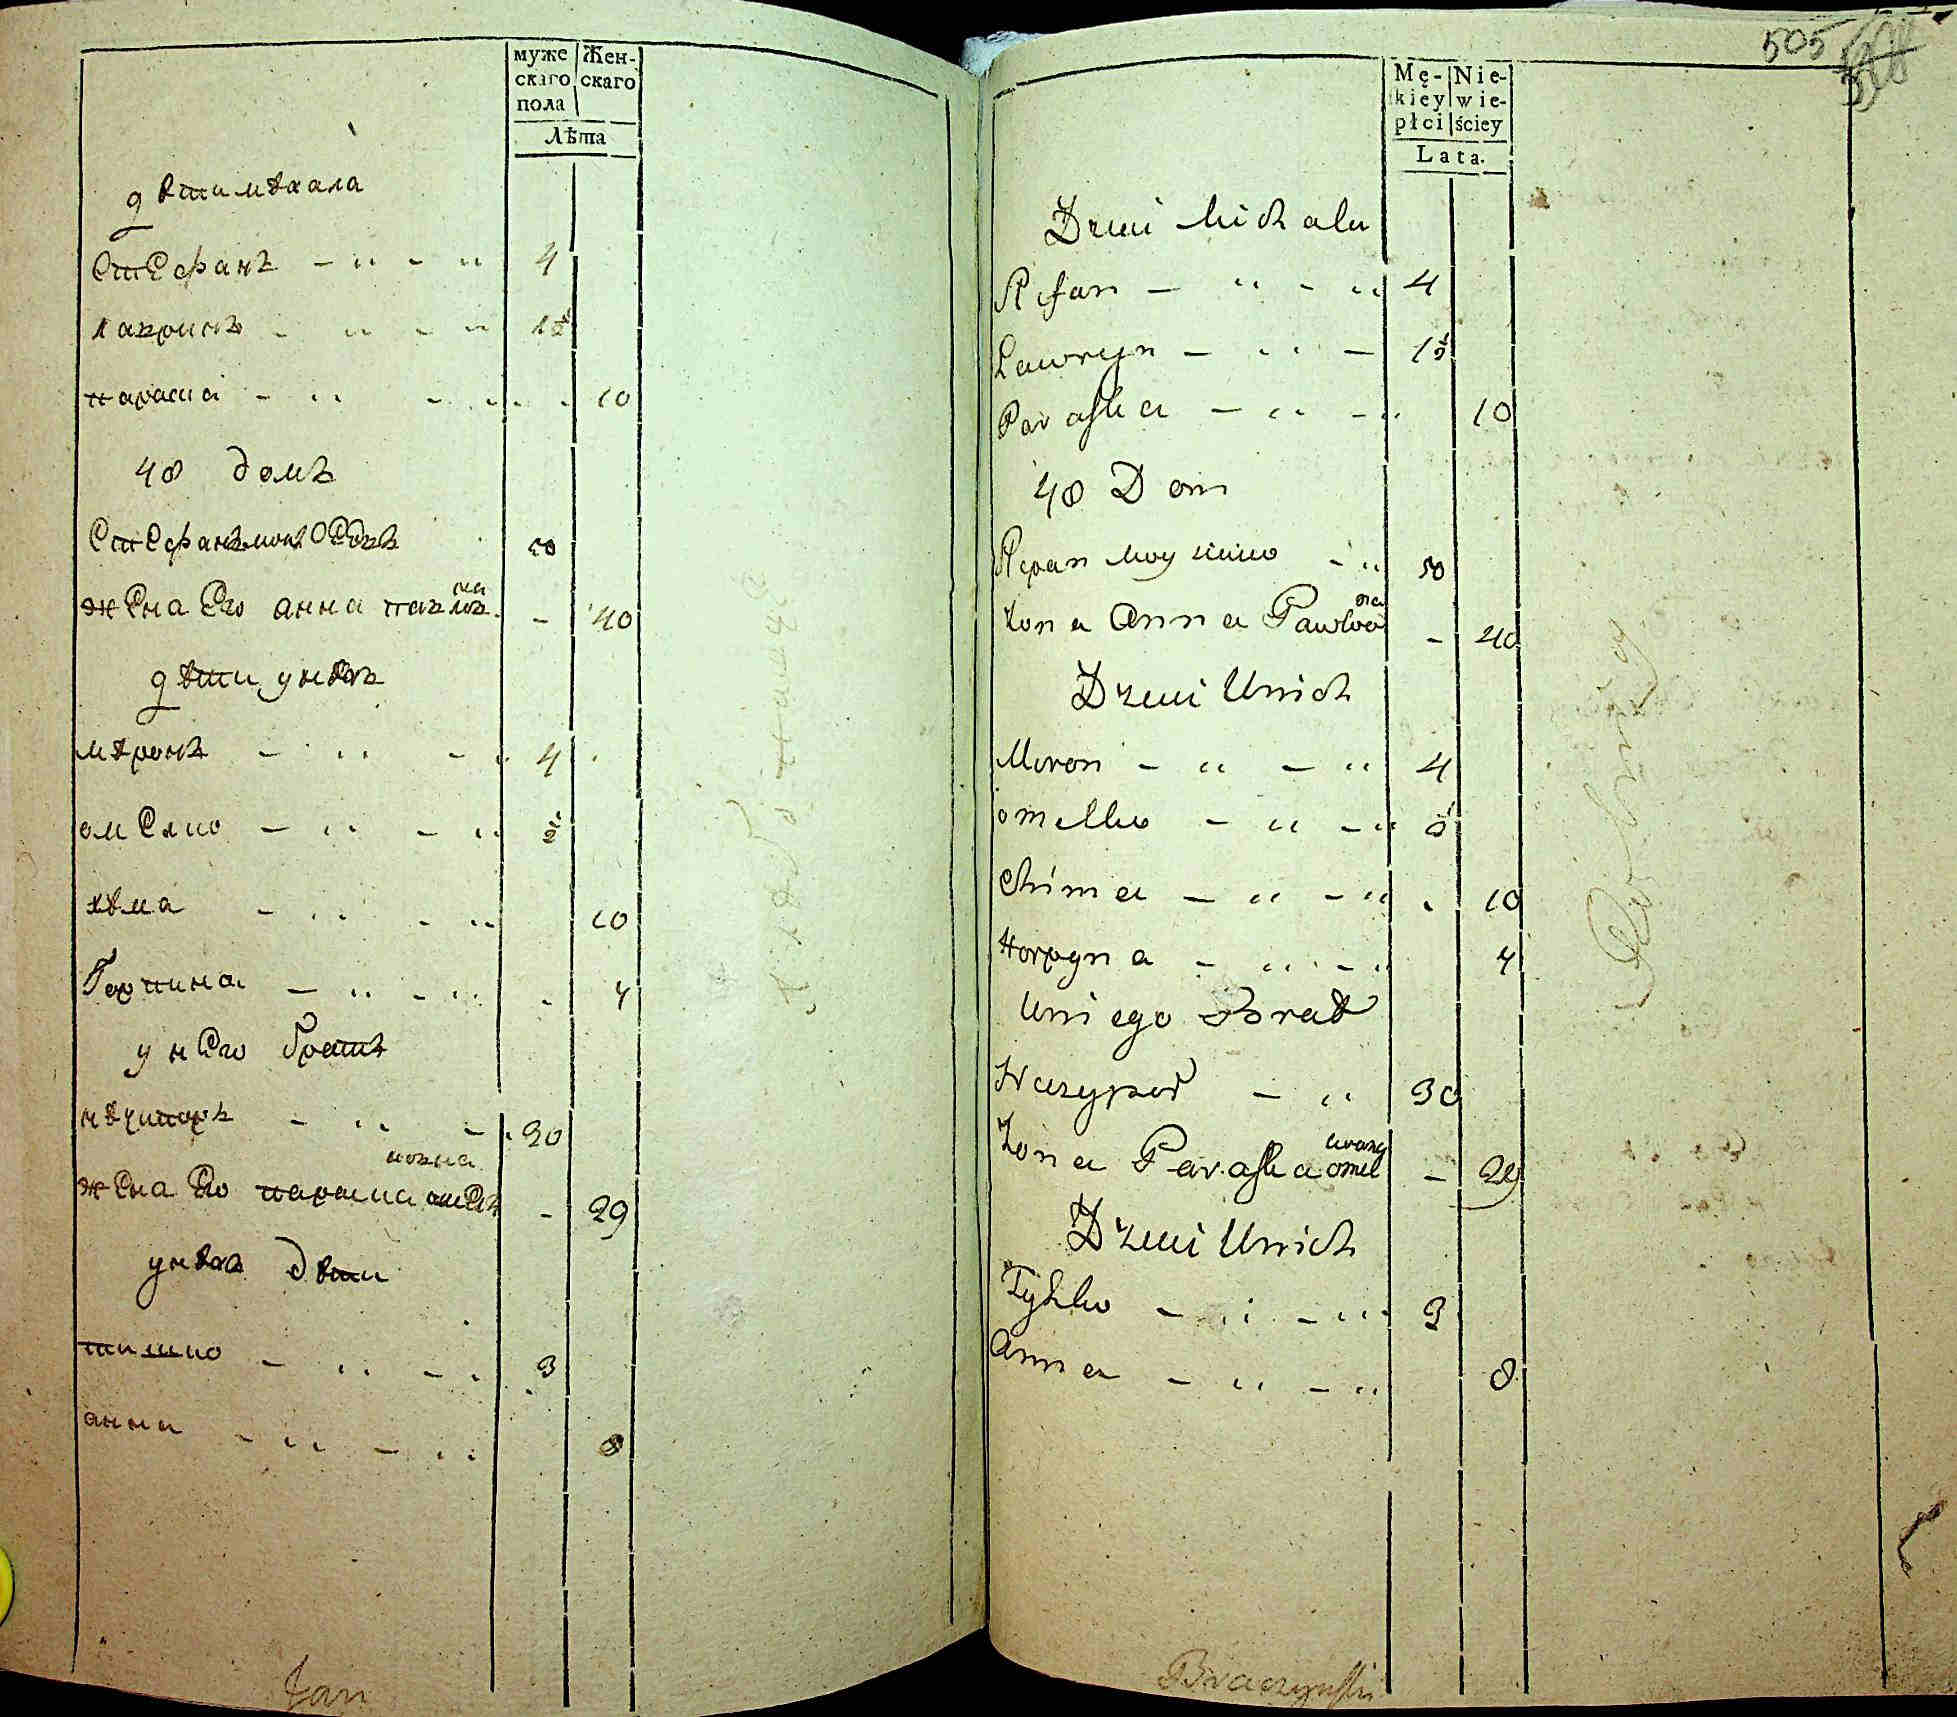 муже
скаго
пола
Жен-
скаго
Лѣта
дѣти мѣхала
Стефанъ 4
лавринъ 1½
параска 10
48 домъ
Стефанъ 50
жена Его анна павловна 40
дѣти унѣхъ
мѣронъ 4
омелко ½
хѣма 10
Горпина 4
у него братъ
нѣчипоръ 30
жена Его параска 29
унѣхъ дѣти
тишко 3
анна 8
Jan
505
Mę-
kiey
płci
Nie-
wie-
ściey
Lata.
Dzieci Michala
Stefan 4
Lawryn 1½
Paraska 10
48 Dom
Stepan 50
Zona Anna Pawlowna 40
Dzieci Unich
Miron 4
omelko
Chima 10
Horpyna 4
Uniego Brat
Naczypor 30
Zona Paraska 29
Dzieci Unich
Tyszko 3
Anna 8
Braczynski